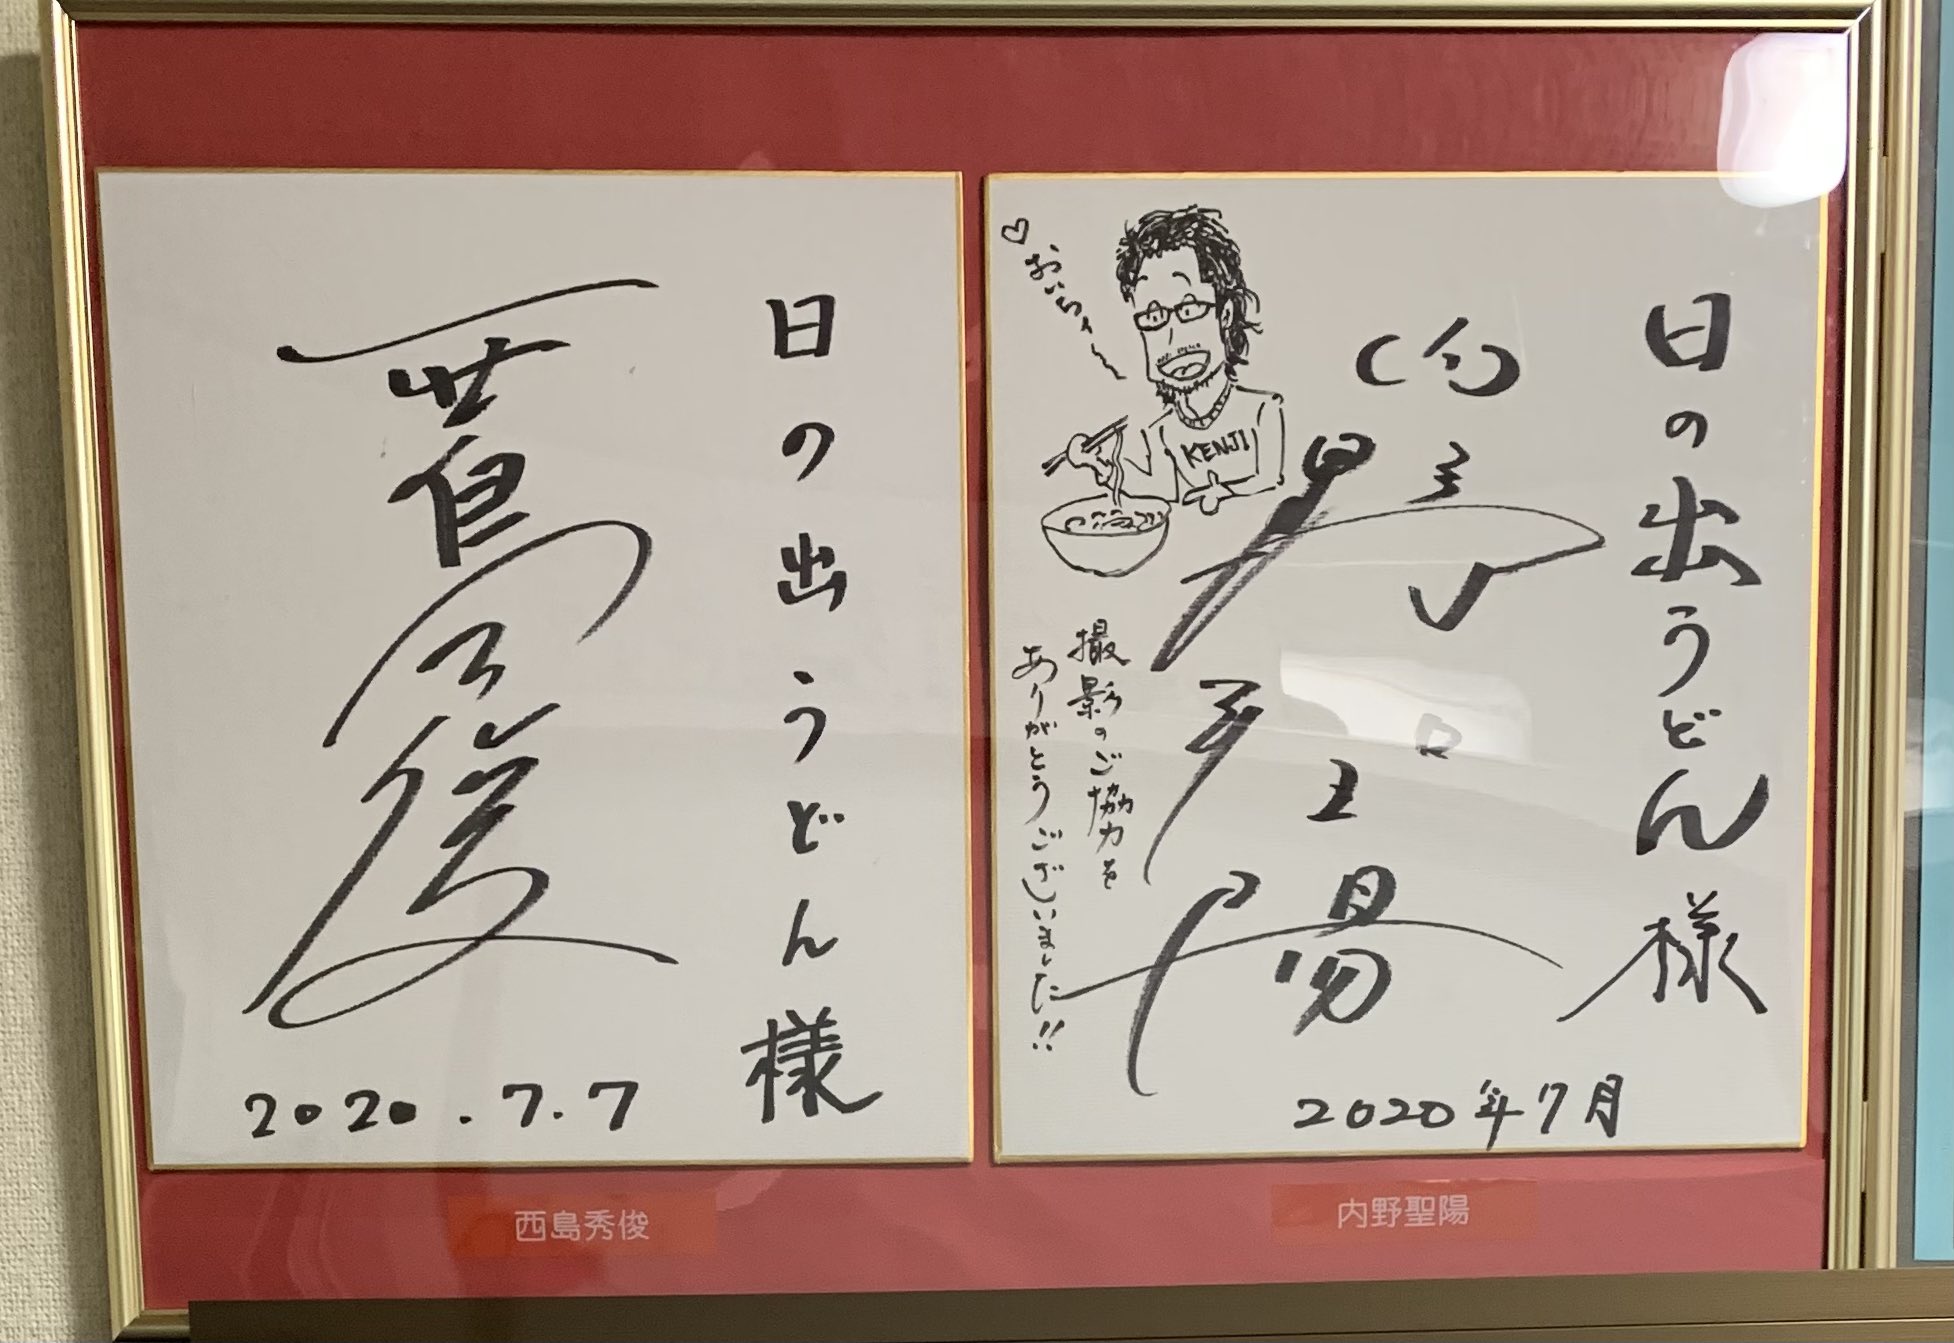 日の出うどん様
2020.7.7
西島秀俊
日の出うどん様
内野聖陽
2020年7月
♡
KENJI
撮影のご協力を
ありがとうございました!!
内野聖陽